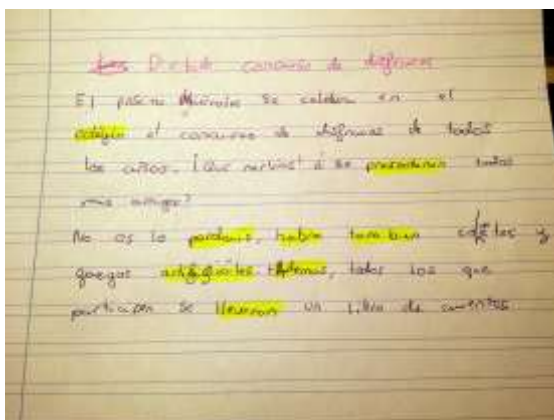 Dictado concurso de disfraces
El próximo miércoles se celebra en el
colegio el concurso de disfraces de todos
los años. ¡Que nervios! ¿ se presentaran todos
mis amigos?
No os lo perdais, habra tambien cohetes y
juegos artificiales. Ademas, todos los que
participen se llevaran un libro de cuentos.